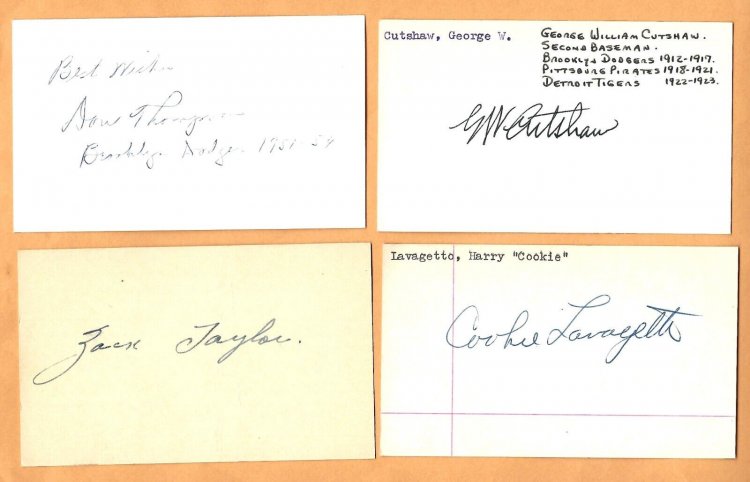 Best Wishes
Don Thompson
Brooklyn Dodgers 1951-54
Cutshaw, George W.
GEORGE WILLIAM CUTSHAW.
SECOND BASEMAN.
BROOKLYN DODGERS 1912-1917.
PITTSBURG PIRATES 1918-1921.
DETROIT TIGERS 1922-1923.
GW Cutshaw
Zack Taylor.
Lavagetto, Harry "Cookie"
Cookie Lavagetto